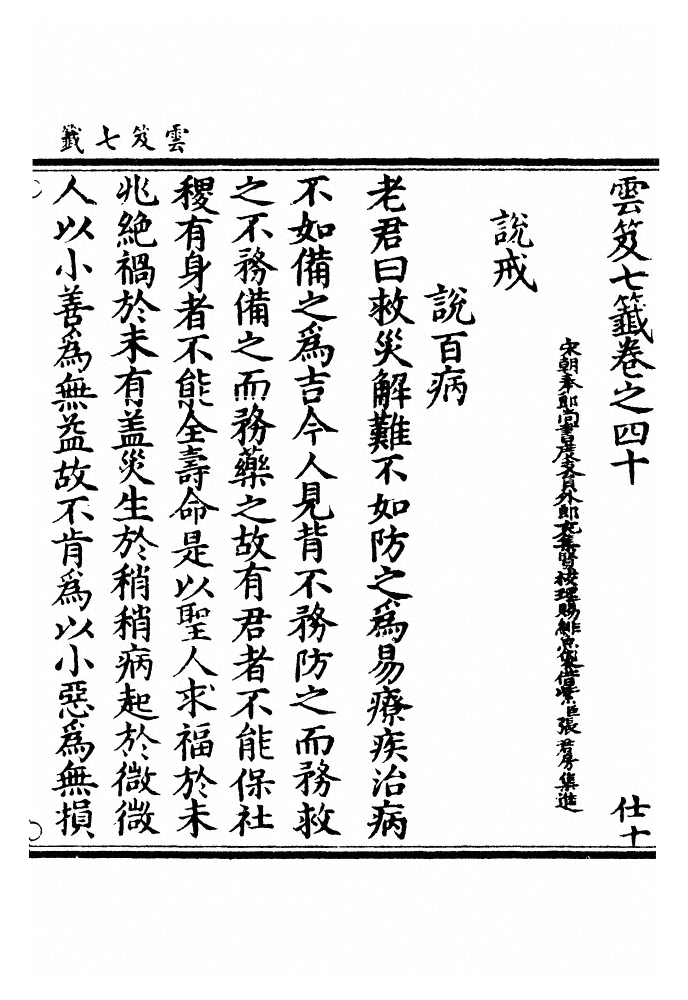 雲笈七籤
雲笈七籤卷之四十
仕十
宋朝奉郎尚書度支員外郎充集賢校理賜緋魚袋借紫臣張君房集進
說戒
說百病
老君曰救災解難不如防之為易療疾治病
不如備之為吉今人見背不務防之而務救
之不務備之而務藥之故有君者不能保社
稷有身者不能全壽命是以聖人求福於未
兆絕禍於未有盖災生於稍稍病起於微微
人以小善為無益故不肯為以小惡為無損